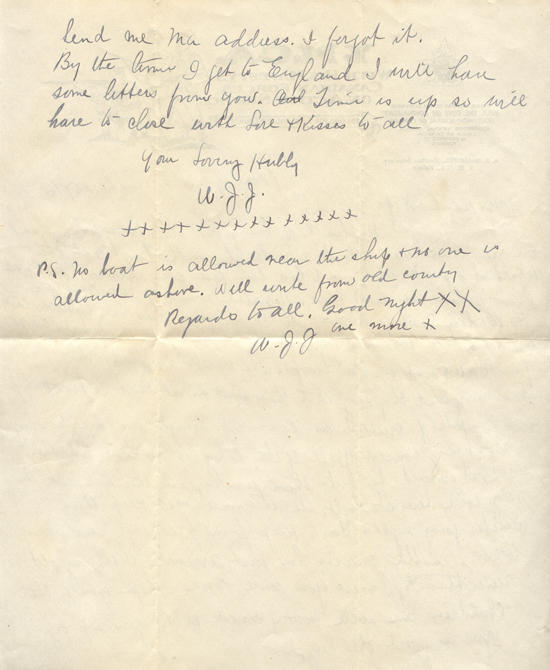 Send me Ma address. I forgot it.
By the time I get to England I will have
some letters from you. And Time is up so will
have to close with Love + Kisses to all
Your Loving Hubby
W. J. J.
+ + + + x x x x x x x x x x
P.S. No boat is allowed near the ship + no one is
allowed ashore. Will write from old country
Regards to all. Good night X X
W. J. J one more x